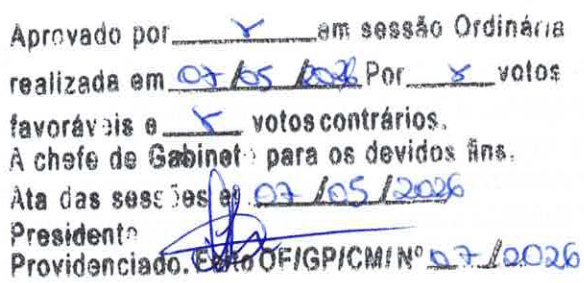 Aprovado por x em sessão Ordinária
realizada em 07/05/2026 Por x votos
favoráveis e x votos contrários.
A chefe de Gabinete para os devidos fins.
Ata das sessões em 07/05/2026
Presidente
Providenciado. Exito OF/GP/CM/Nº 07/2026